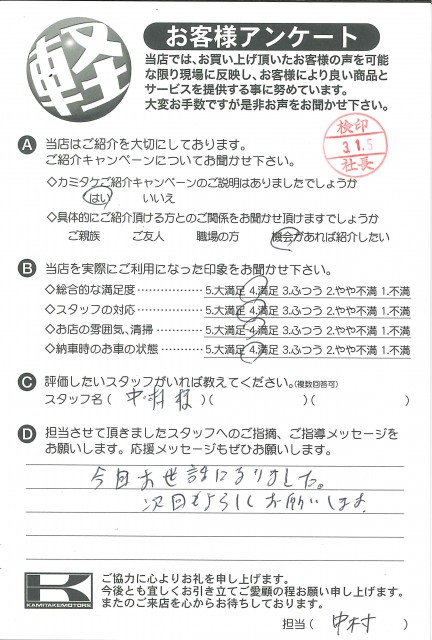 軽
お客様アンケート
当店では、お買い上げ頂いたお客様の声を可能
な限り現場に反映し、お客様により良い商品と
サービスを提供する事に努めています。
大変お手数ですが是非お声をお聞かせ下さい。
検印
31.5
社長
A 当店はご紹介を大切にしております。
ご紹介キャンペーンについてお聞かせ下さい。
◇カミタケご紹介キャンペーンのご説明はありましたでしょうか
はい いいえ
◇具体的にご紹介頂ける方とのご関係をお聞かせ頂けますでしょうか
ご親族 ご友人 職場の方 機会があれば紹介したい
B 当店を実際にご利用になった印象をお聞かせ下さい。
◇総合的な満足度 ‥‥‥‥‥‥ 5.大満足 4.満足 3.ふつう 2.やや不満 1.不満
◇スタッフの対応 ‥‥‥‥‥‥ 5.大満足 4.満足 3.ふつう 2.やや不満 1.不満
◇お店の雰囲気、清掃 ‥‥‥‥ 5.大満足 4.満足 3.ふつう 2.やや不満 1.不満
◇納車時のお車の状態 ‥‥‥‥ 5.大満足 4.満足 3.ふつう 2.やや不満 1.不満
C 評価したいスタッフがいれば教えてください。(複数回答可)
スタッフ名 ( 中村様 )( )( )
D 担当させて頂きましたスタッフへのご指摘、ご指導メッセージを
お願いします。応援メッセージもぜひお願いします。
今回お世話になりました。
次回もよろしくお願いします
KAMITAKEMOTORS
ご協力に心よりお礼を申し上げます。
今後とも宜しくお引き立てご愛顧の程お願い申し上げます。
またのご来店を心からお待ちしております。
担当 ( 中村 )